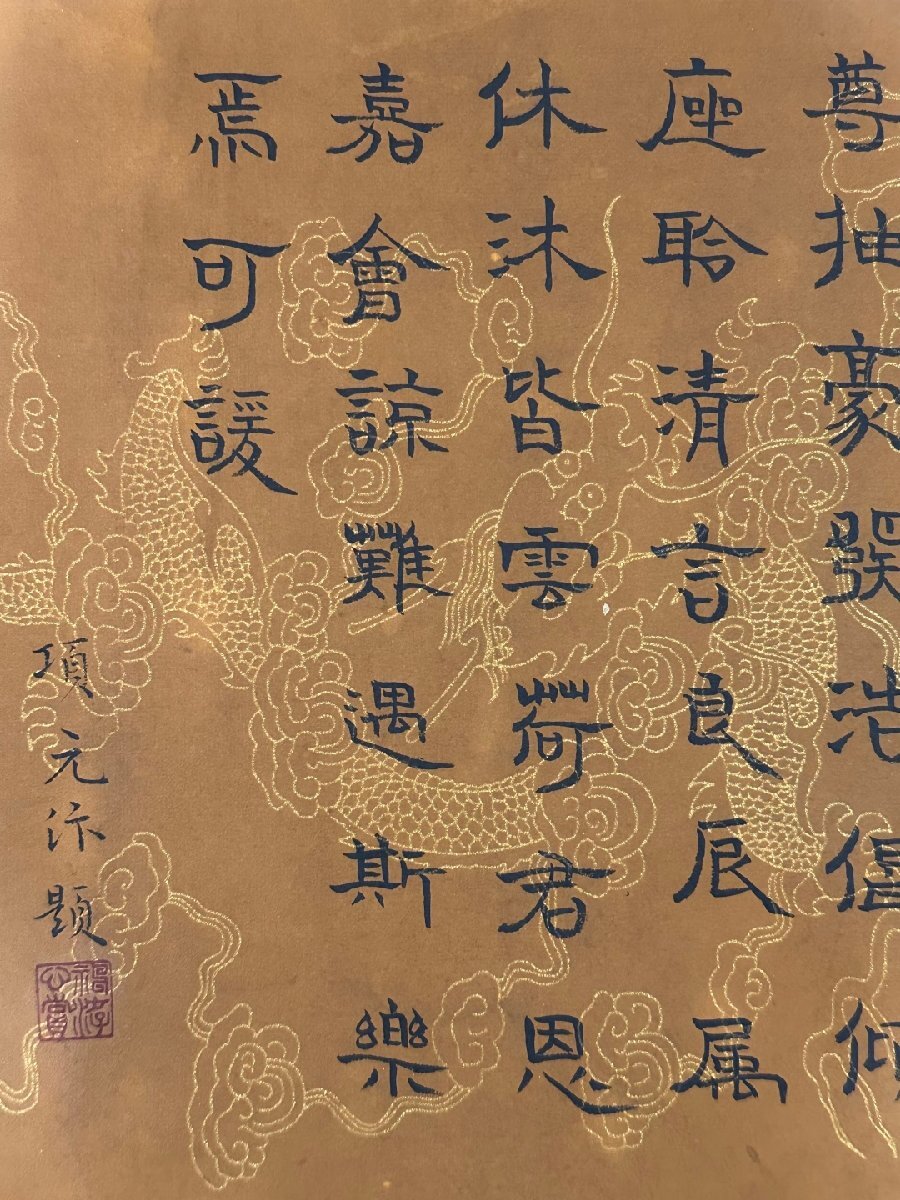 尊抽豪發浩倡仰
座聆清言良辰属
休沐皆雲荷君恩
嘉會諒難遇斯樂
焉可諼
項元汴題
神游心賞